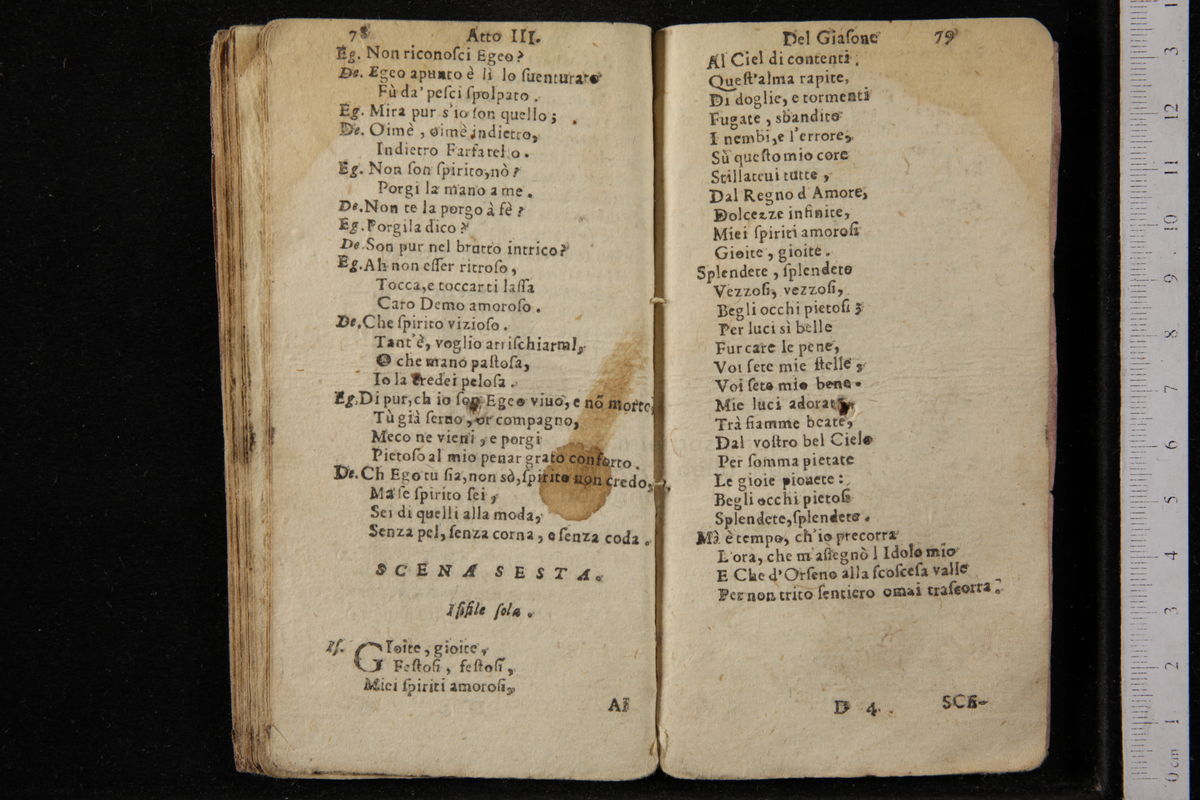 78 Atto III.
Eg. Non riconoſci Egeo?
De. Egeo apunto è lì lo ſuenturato
Fù da' peſci ſpolpato.
Eg. Mira pur s'io ſon quello;
De. Oimè, oimè indietro,
Indietro Farfarello.
Eg. Non ſon ſpirito, nò?
Porgi la mano a me.
De. Non te la porgo à fè?
Eg. Porgila dico?
De. Son pur nel brutto intrico?
Eg. Ah non eſſer ritroſo,
Tocca, e toccarti laſſa
Caro Demo amoroſo.
De. Che ſpirito vizioſo.
Tant'è, voglio arriſchiarmi,
O che mano paſtoſa,
Io la credei peloſa.
Eg. Di pur, ch io ſon Egeo viuo, e nõ morto,
Tù già ſeruo, or compagno,
Meco ne vieni, e porgi
Pietoſo al mio penar grato conforto.
De. Ch Ego tu ſia, non sò, ſpirito non credo,
Ma ſe ſpirito ſei,
Sei di quelli alla moda,
Senza pel, ſenza corna, e ſenza coda.
SCENA SESTA.
Iſifile ſola.
Iſ. GIoite, gioite,
Feſtoſi, feſtoſi,
Miei ſpiriti amoroſi,
Al
Del Giaſone 79
Al Ciel di contenti
Queſt'alma rapite,
Di doglie, e tormenti
Fugate, sbandito
I nembi, e l'errore,
Sù queſto mio core
Stillateui tutte,
Dal Regno d Amore,
Dolcezze infinite,
Miei ſpiriti amoroſi
Gioite, gioite.
Splendete, ſplendete
Vezzoſi, vezzoſi,
Begli occhi pietoſi;
Per luci sì belle
Fur care le pene,
Voi ſete mie ſtelle,
Voi ſete mio bene.
Mie luci adorate,
Trà fiamme beate,
Dal voſtro bel Cielo
Per ſomma pietate
Le gioie piouete:
Begli occhi pietoſi
Splendete, ſplendete.
Mà è tempo, ch'io precorra
L'ora, che m'aſſegnò l Idolo mio
E Che d'Orſeno alla ſcoſceſa valle
Per non trito ſentiero omai traſcorra.
D 4 SCE-